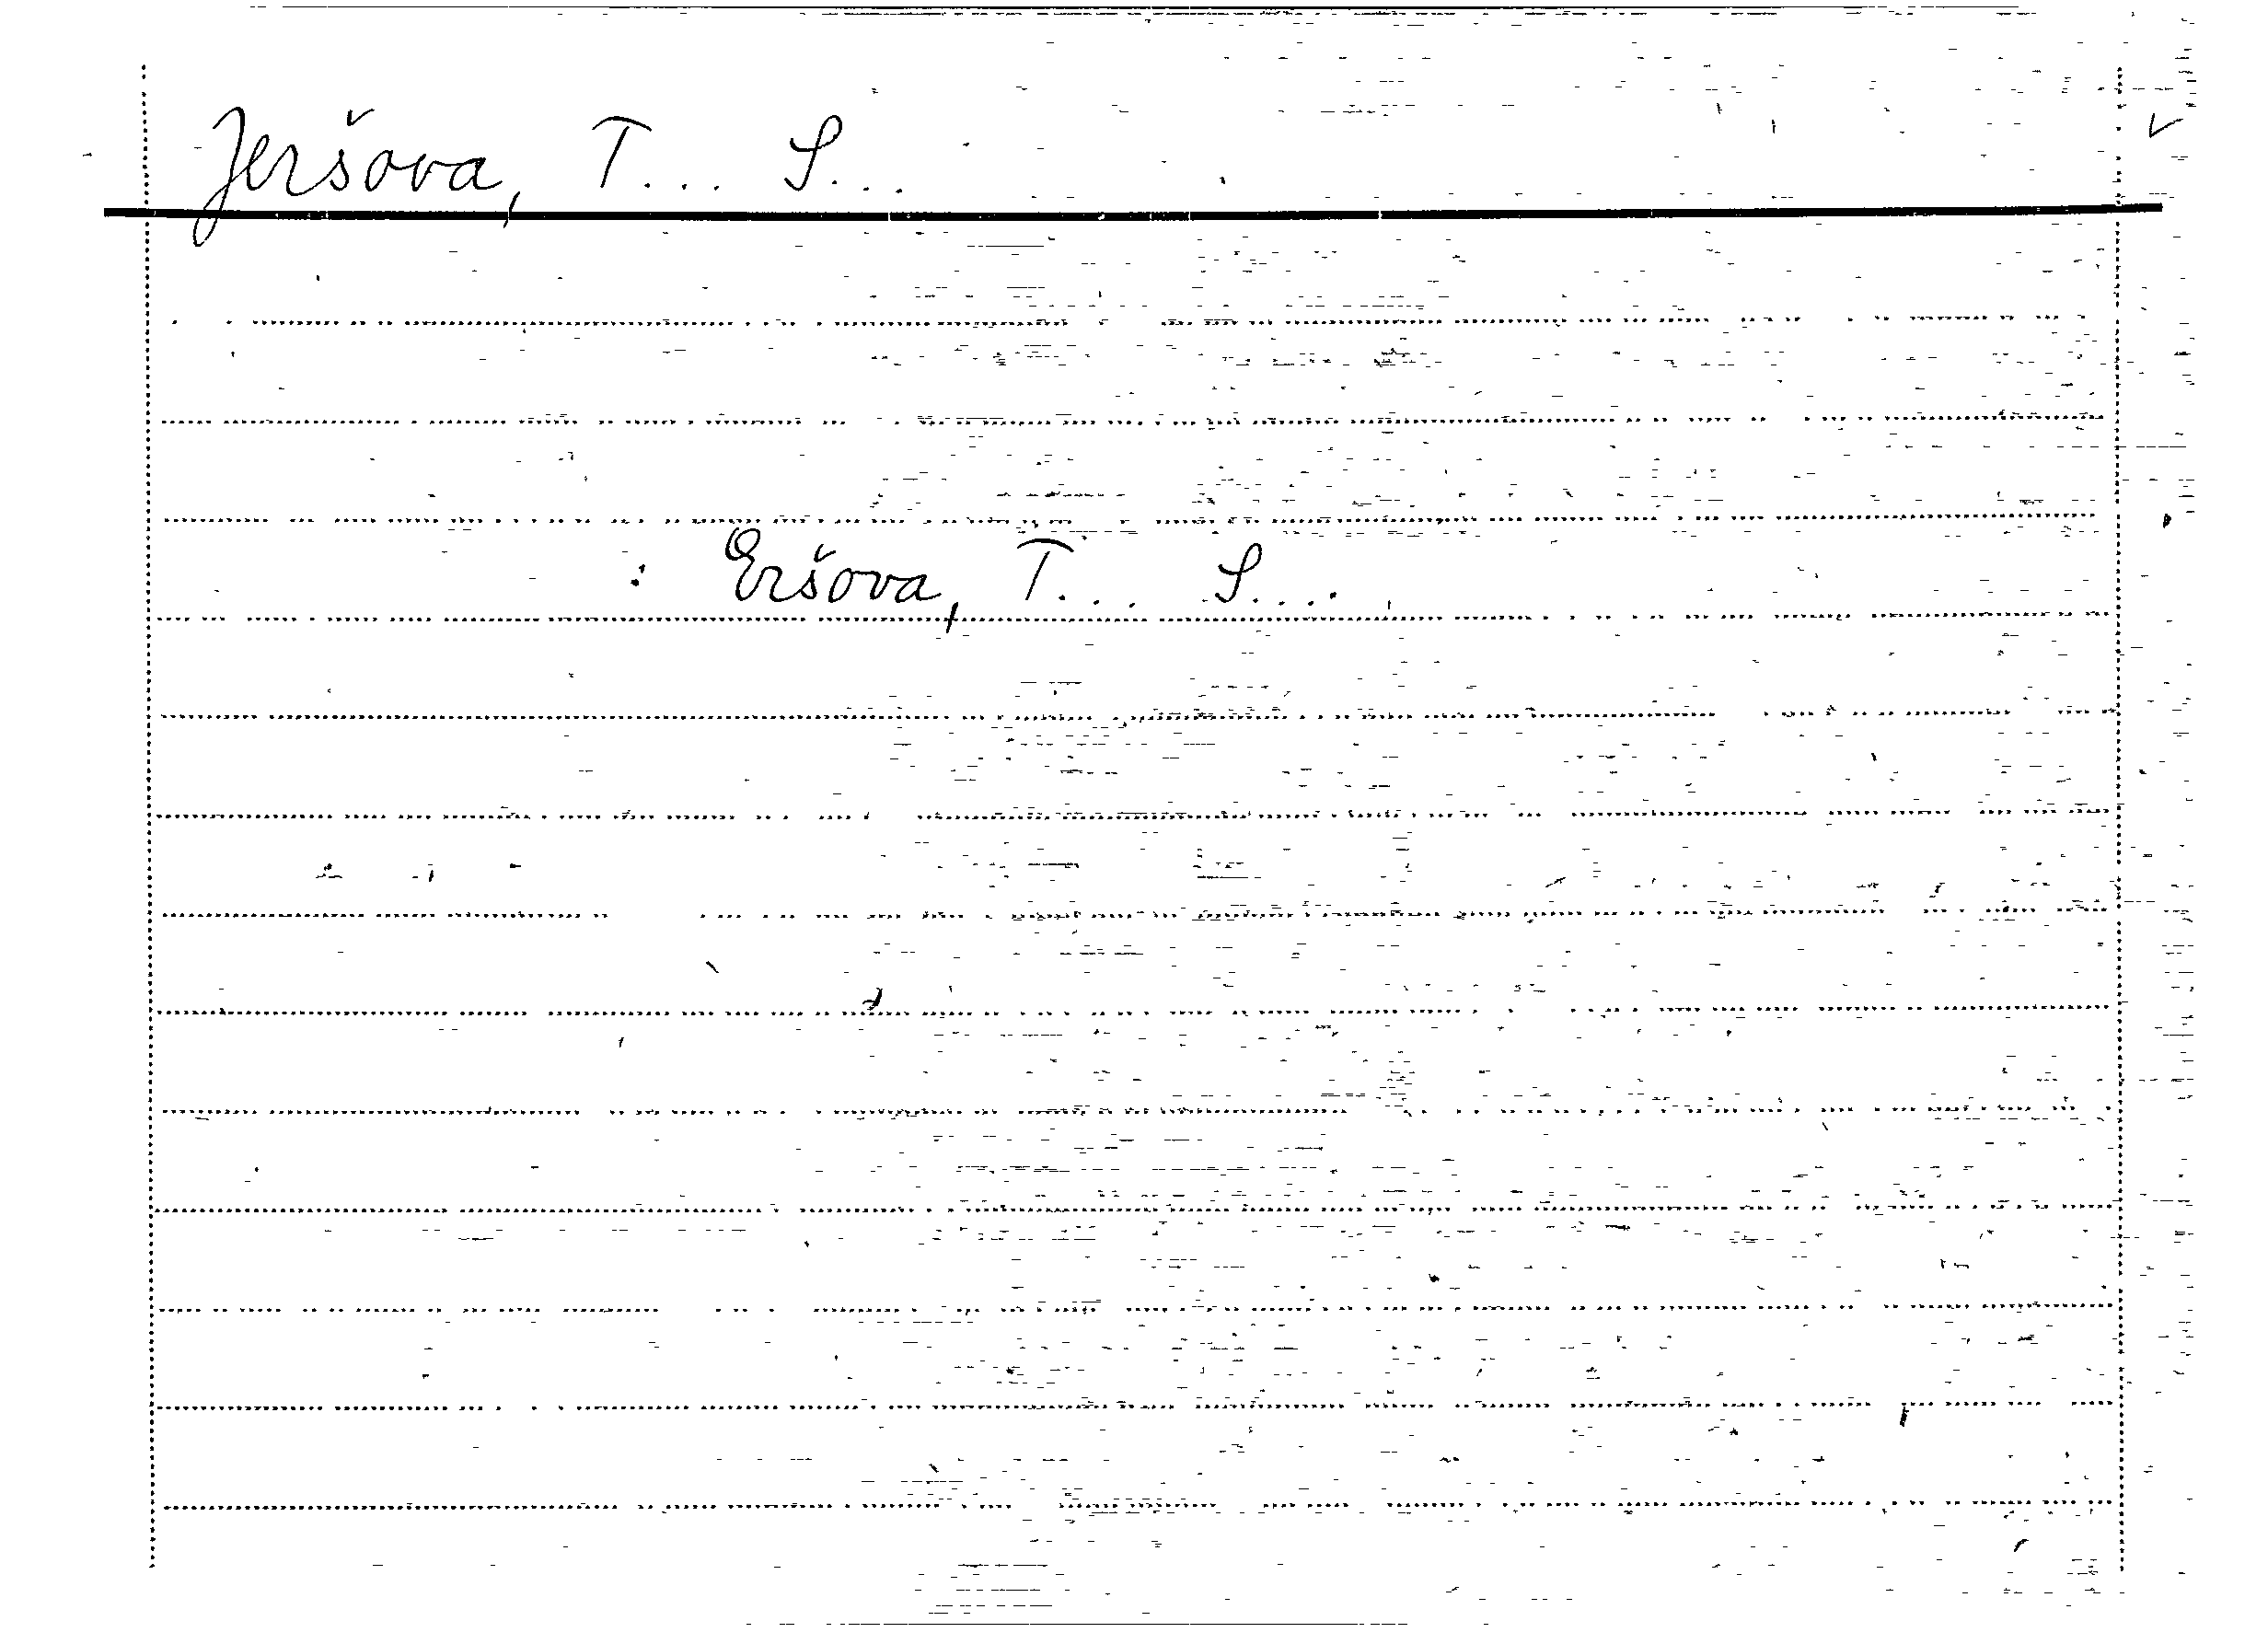 Jeršova, T... S...
: Eršova, T... S....